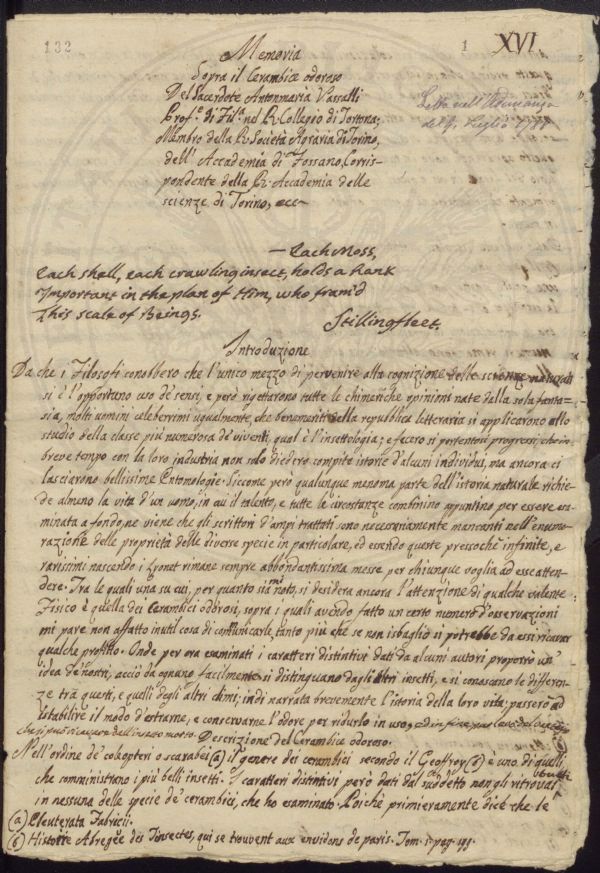 132
1
XVI.
Memoria
Sopra il Cerambice odoroso
Del Sacerdote Antonmaria Vassalli
Prof.e di Fil.a nel R. Collegio di Tortona;
Membro della R. Società Agraria di Torino,
dell' Accademia di Fossano, Corris-
pondente della R. Accademia delle
scienze di Torino, ecc
Letta nell' Adunanza
del 9. Luglio
— Each Moss,
Each shell, each crawling insect, holds a Rank
Important in the plan of Him, who fram'd
This scale of Beings.
Stillingfleet.
Introduzione
Da che i Filosofi conobbero che l'unico mezzo di pervenire alla cognizione delle scienze naturali
si è l'opportuno uso de' sensi, e però rigettarono tutte le chimeriche opinioni nate della sola fanta=
sia, molti uomini celeberrimi ugualmente, che benemeriti della repubblica letteraria si applicarono allo
studio della classe più numerosa de' viventi, qual è l'insettologia; e fecero sì portentosi progressi, che in
breve tempo con la loro industria non solo diedero compite istorie d'alcuni individui, ma ancora ci
lasciarono bellissime Entomologie. Siccome però qualunque menoma parte dell'istoria naturale richie-
de almeno la vita d'un uomo, in cui il talento, e tutte le circostanze combinino appuntino per essere esa-
minata a fondo, ne viene che gli scrittori d'ampi trattati sono necessariamente mancanti nell'enume-
razione delle proprietà delle diverse specie in particolare, ed essendo queste pressochè infinite, e
rarissimi nascendo i Lyonet rimane sempre abbondantissima messe per chiunque voglia ad esse atten-
dere. Tra le quali una su cui, per quanto sia mi noto, si desidera ancora l'attenzione di qualche valente
Fisico è quella dei Cerambici odorosi, sopra i quali avendo fatto un certo numero d'osservazioni
mi pare non affatto inutil cosa di comunicarle, tanto più che se non isbaglio si potrebbe da essi ricavar
qualche profitto. Onde per ora esaminati i caratteri distintivi dati da alcuni autori proporrò un'
idea de' nostri, acciò da ognuno facilmente si distinguano dagli altri insetti, e si conoscano le differen-
ze tra questi, e quelli degli altri climi; indi narrata brevemente l'istoria della loro vita; passerò ad
istabilire il modo d'estrarne, e conservarne l'odore per ridurlo in uso,
che si può ricavare dall'insetto morto. Descrizione del Cerambice odoroso.
Nell'ordine de' coleopteri o scarabei (a) il genere dei cerambici secondo il Geoffroy (b) è uno di quelli,
che somministrano i più belli insetti. I caratteri distintivi però dati dal suddetto non gli ritrovai
in nessuna delle specie de' cerambici, che ho esaminato. Poichè primieramente dice che le
(a) Eleuterata Fabricii.
(b) Histoire Abregée des Insectes, qui se trouvent aux environs de paris. Tom. 1. pag. 199.